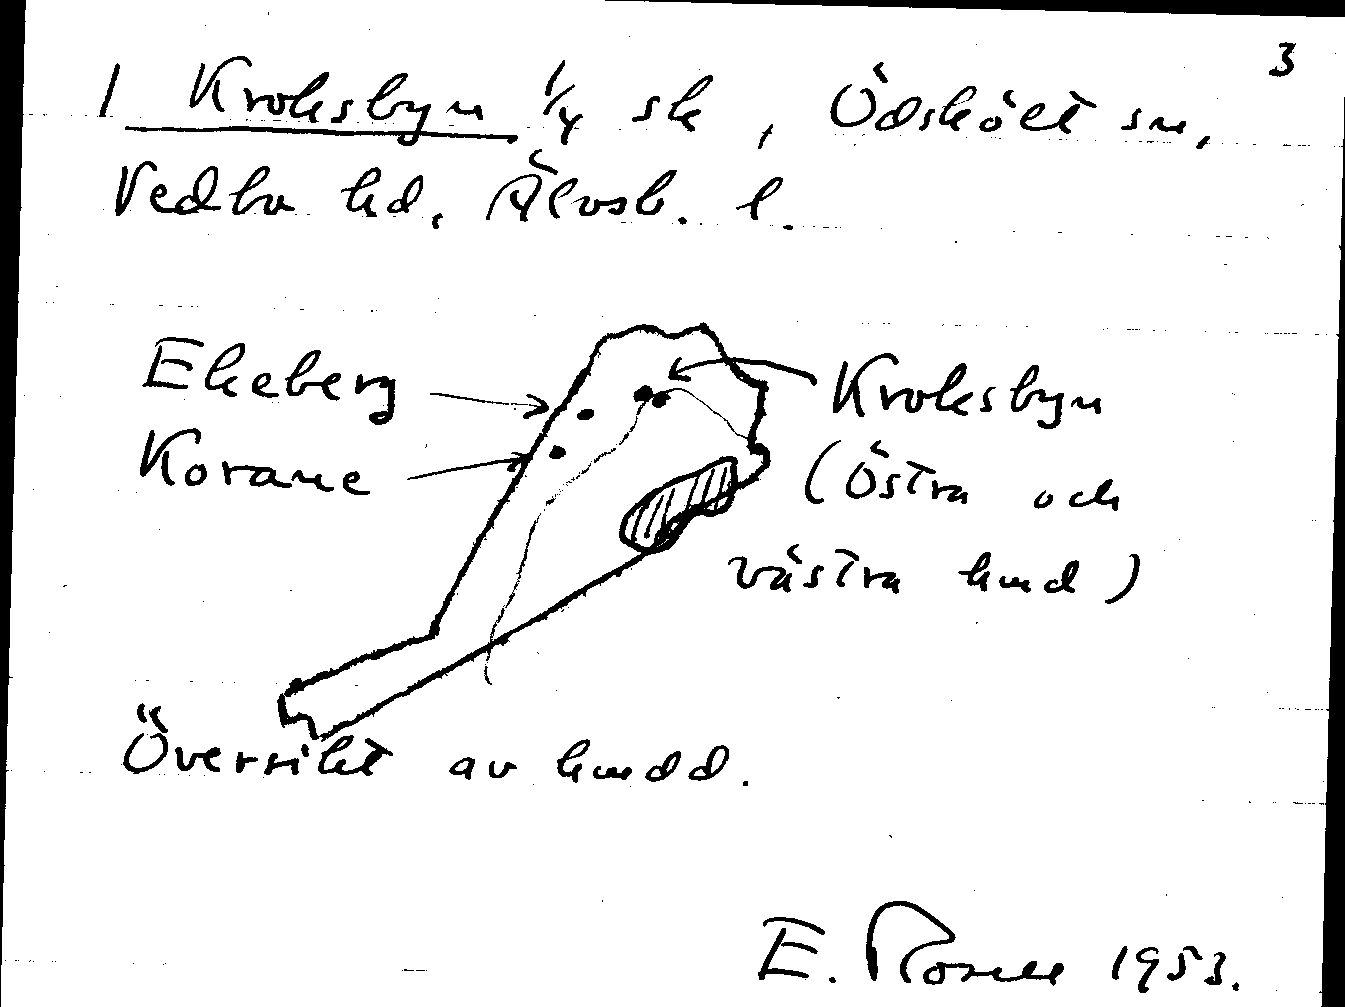 3
1 Kroksbyn 1/4 sk, Ödskölt sn,
Vedbo hd, Älvsb. l.
Ekeberg
Korane
Kroksbyn
(Östra och
västra hmd)
Översikt av hmdd.
E. Rosell 1953.